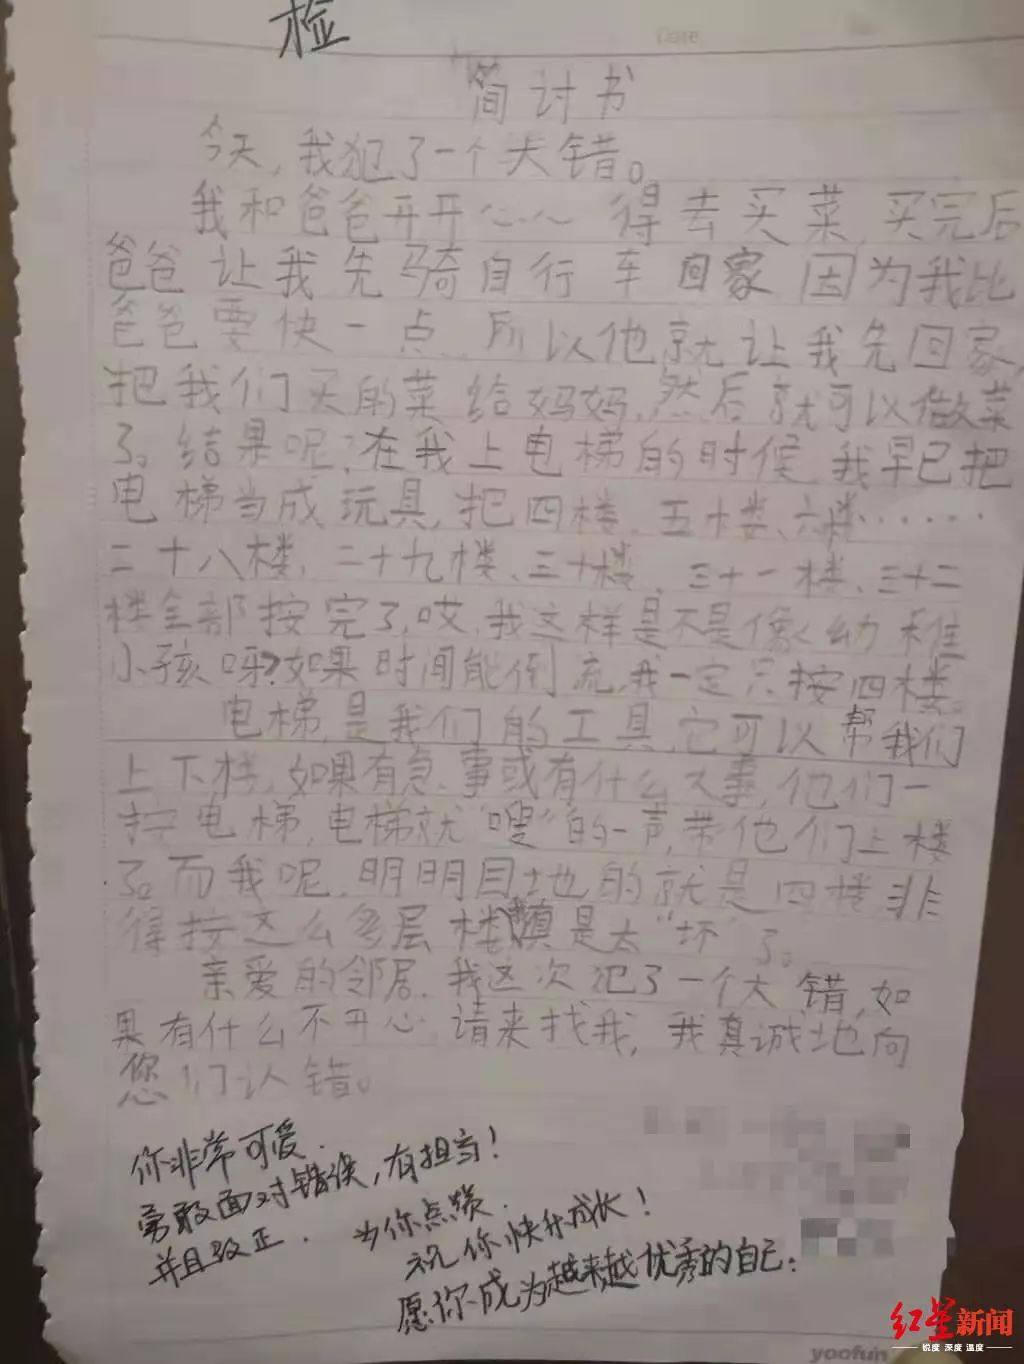 检
Date
简讨书
今天,我犯了一个大错。
我和爸爸开开心心得去买菜,买完后
爸爸让我先骑自行车回家因为我比
爸爸要快一点.所以他就让我先回家,
把我们买的菜给妈妈,然后就可以做菜
了。结果呢?在我上电梯的时候,我早已把
电梯当成玩具,把四楼、五楼、六楼……
二十八楼、二十九楼、三十楼、三十一楼、三十二
楼全部按完了,哎,我这样是不是像幼稚
小孩呀?如果时间能倒流,我一定只按四楼。
电梯,是我们的工具,它可以帮我们
上下楼,如果有急事或有什么大事,他们一
按电梯,电梯就“嗖”的一声,带他们上楼
了。而我呢,明明目地的就是四楼,非
得按这么多层楼,真是太“坏”了。
亲爱的邻居,我这次犯了一个大错,如
果有什么不开心,请来找我,我真诚地向
您们认错。
你非常可爱.
勇敢面对错误,有担当!
并且改正. 为你点赞.
祝你快乐成长!
愿你成为越来越优秀的自己:
红星新闻
锐度 深度 温度
yoofun